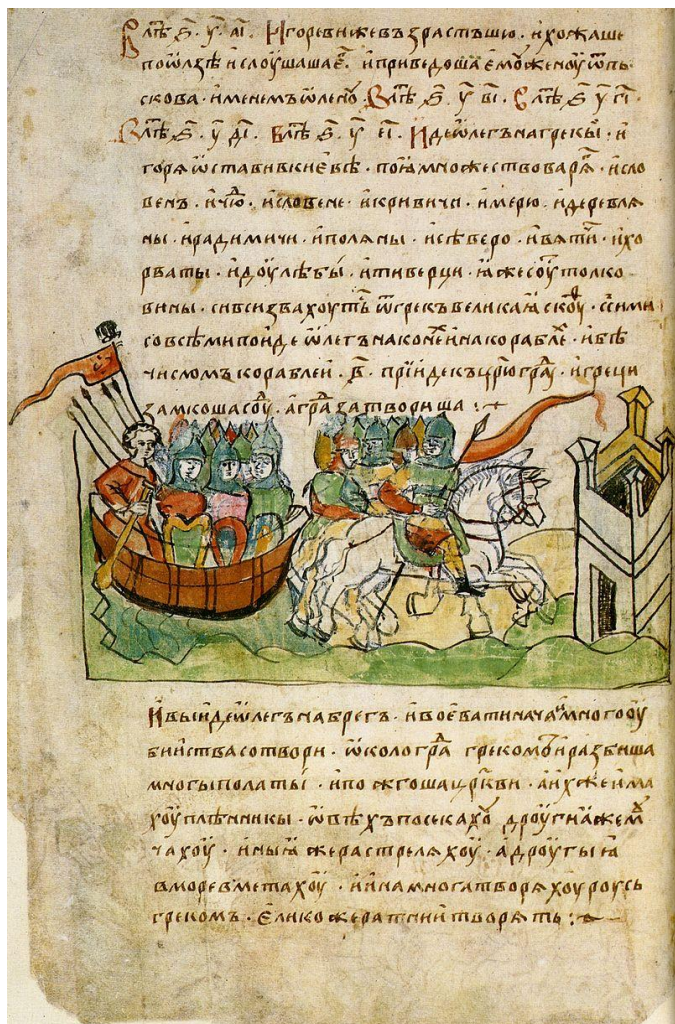 В лѣⷮ ҂ѕ҃. у҃. а҃і. Игореви же възрастъшю. и хожаше
по ѿлзѣ и слоушаша еⷢ҇. и приведоша емоу женоу ѿ пь
скова. именемъ ѡленоу. В лѣⷮ ҂ѕ҃. у҃ в҃і. В лѣⷮ ҂ѕ҃ у҃ г҃і.
В лѣⷮ ҂ѕ҃. у҃ д҃і. В лѣⷮ ҂ѕ҃. у҃ е҃і. Иде ѡлегъ на грекы. и
горя ѡставивъ киевѣ. поꙗ множество варяⷢ. и сло
венъ. и чюⷣ. и словене. и кривичи. и мерю. и деревля
ны. и радимичи. и поляны. и сѣверо. и вятичи. и хо
рваты. и доулѣбы. и тиверци. ꙗже соуⷮ толко
вины. си вси звахоуть ѿ грекъ великаꙗ скоуⷴ. с сими
со всѣми поиде ѡлегъ на конеⷯ и на кораблеⷯ. и бѣ
числомъ кораблеи. в҃. прїиде къ црⷭ҇юграⷣу. и греци
замкоша соуⷣ. а граⷣ затвориша :~
И выиде ѡлегъ на брегъ. и воевати нача. и много оу
бииства сотвори. ѡколо граⷣ грекомъ. и разбиша
многы полаты. и пожгоша црⷪ҇кви. а ихже има
хоу плѣнникы. ѡвѣхъ посекахоу дроугиꙗ же моу
чахоу. иныꙗ же растреляхоу. а дроугыꙗ
в море вметахоу. и ина многа творяхоу роусь
грекомъ. елико же ратнии творять :~